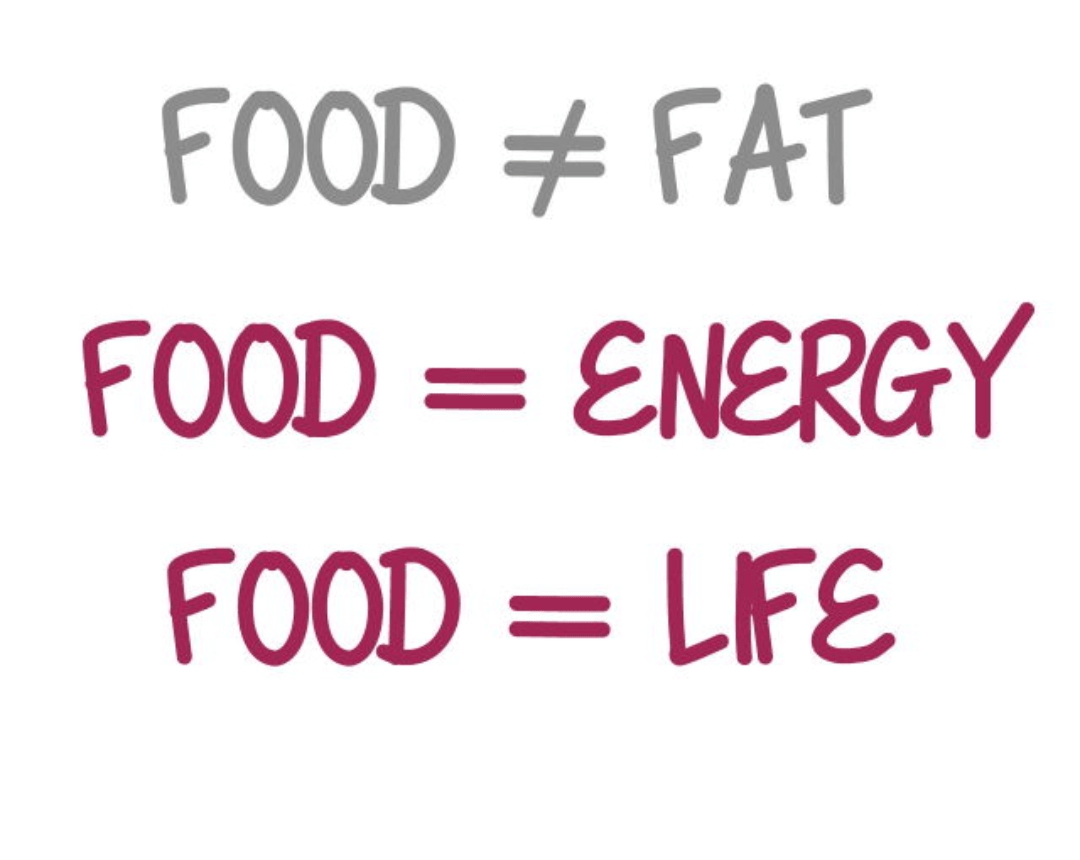 FOOD ≠ FAT
FOOD = ENERGY
FOOD = LIFE